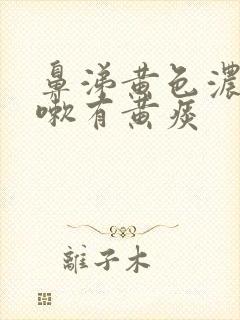 鼻涕黄色濃
嗽有黄痰
離子木